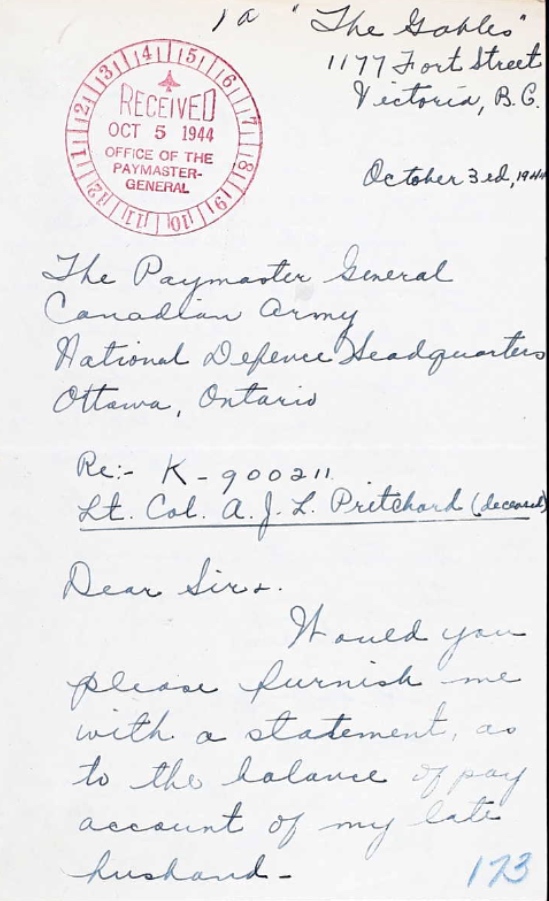 1a "The Gables"
1177 Fort Street
Victoria, B.C.
October 3rd, 1944
4 5 6 7 8 9 10 11 12 1 2 3
RECEIVED
OCT 5 1944
OFFICE OF THE
PAYMASTER-
GENERAL
The Paymaster General
Canadian Army
National Defence Headquarters
Ottawa, Ontario
Re:- K-900211
Lt. Col. A.J.L. Pritchard (deceased)
Dear Sir.
Would you
please furnish me
with a statement, as
to the balance of pay
account of my late
husband-
173